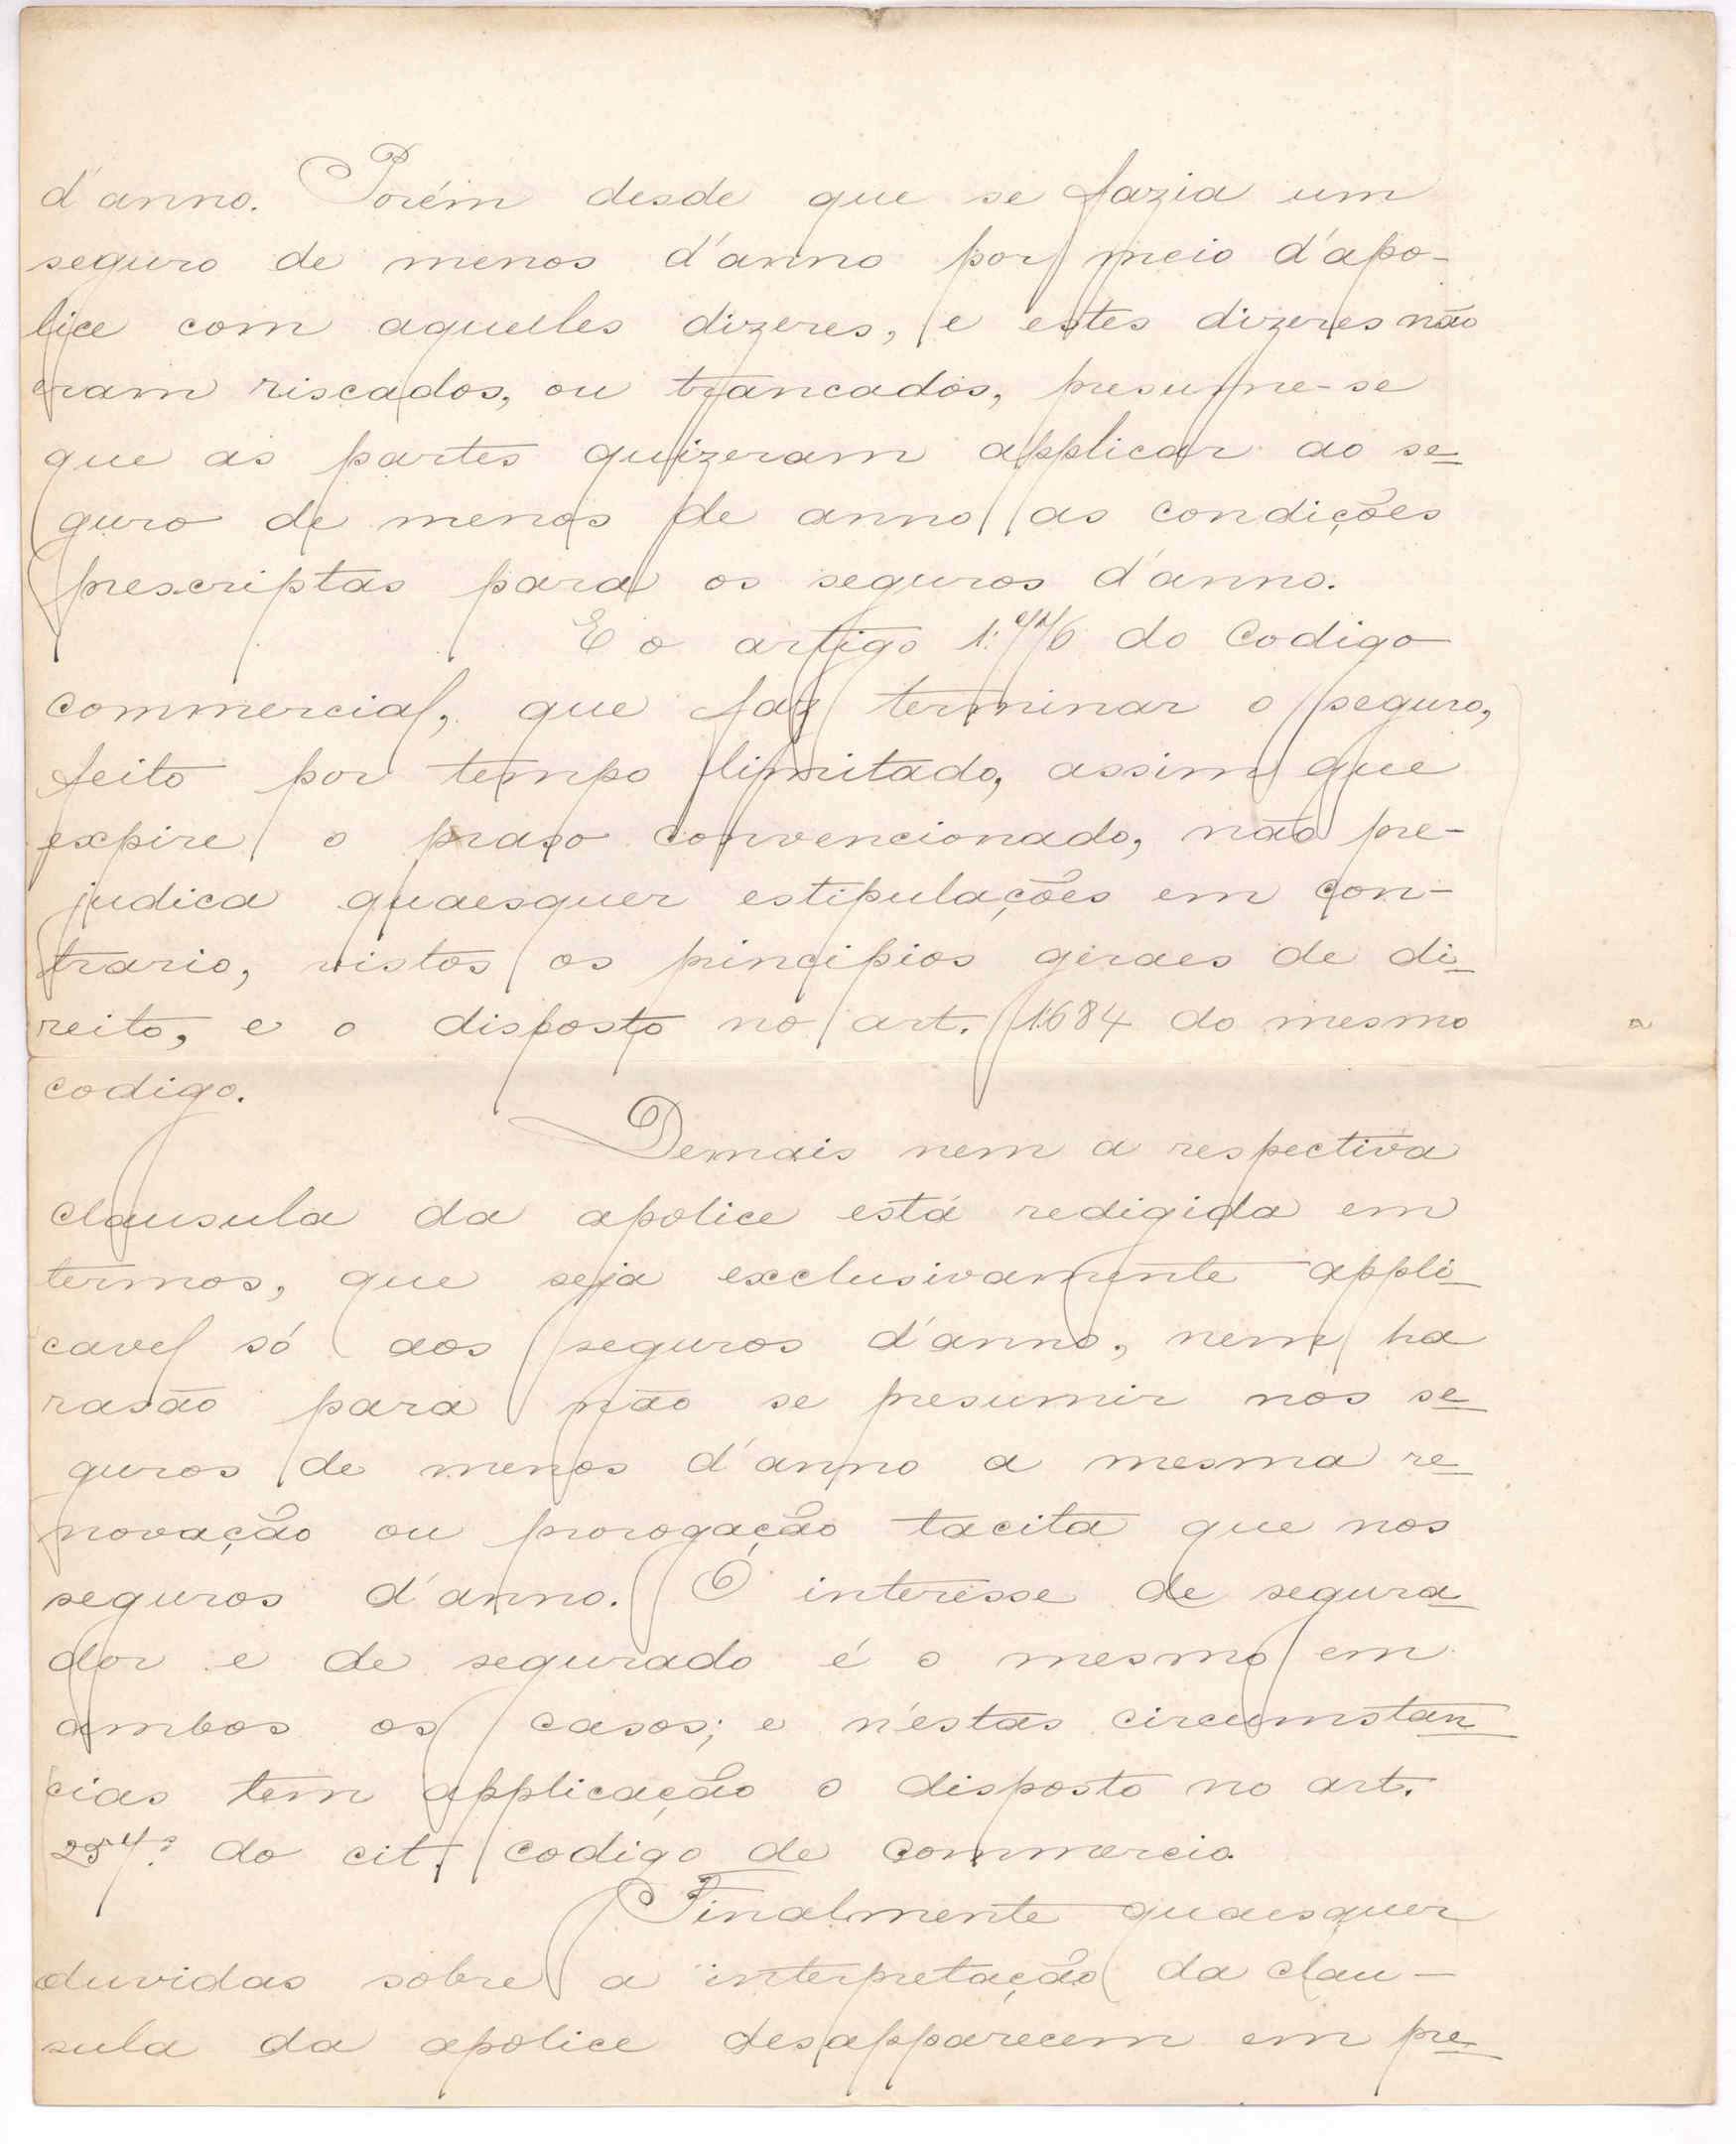 d'anno. Porém desde que se fazia um
seguro de menos d'anno por meio d'apo-
lice com aquelles dizeres, e estes dizeres não
eram riscados, ou trancados, presume-se
que as partes quizeram applicar ao se-
guro de menos de anno as condições
prescriptas para os seguros d'anno.
E o artigo do Codigo
commercial, que faz terminar o seguro,
feito por tempo limitado, assim que
expire o praso convencionado, não pre-
judica quaesquer estipulações em con-
trario, vistos os principios geraes de di-
reito, e o disposto no art. 1684 do mesmo
codigo.
Demais nem a respectiva
clausula da apolice está redigida em
termos, que seja exclusivamente appli-
cavel só aos seguros d'anno, nem ha
rasão para não se presumir nos se-
guros de menos d'anno a mesma re-
novação ou prorogação tacita que nos
seguros d'anno. O interesse de segura-
dor e de segurado é o mesmo em
ambos os casos; e n'estas circumstan-
cias tem applicação o disposto no art.
254º do cit. codigo de commercio.
Finalmente quaesquer
duvidas sobre a interpretação da clau-
sula da apolice desapparecem em pre-